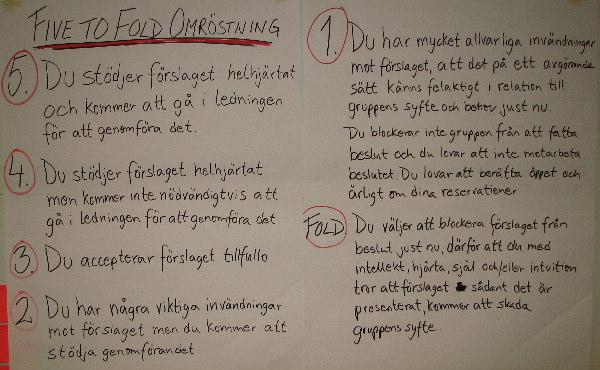 FIVE TO FOLD OMRÖSTNING
5. Du stödjer förslaget helhjärtat
och kommer att gå i ledningen
för att genomföra det.
4. Du stödjer förslaget helhjärtat
men kommer inte nödvändigtvis att
gå i ledningen för att genomföra det
3. Du accepterar förslaget tillfullo
2 Du har några viktiga invändningar
mot förslaget men du kommer att
stödja genomförandet
1. Du har mycket allvarliga invändningar
mot förslaget, att det på ett avgörande
sätt känns felaktigt i relation till
gruppens syfte och behov just nu.
Du blockerar inte gruppen från att fatta
beslut och du lovar att inte motarbeta
beslutet. Du lovar att berätta öppet och
ärligt om dina reservationer
FOLD. Du väljer att blockera förslaget från
beslut just nu, därför att du med
intellekt, hjärta, själ och/eller intuition
tror att förslaget sådant det är
presenterat, kommer att skada
gruppens syfte.